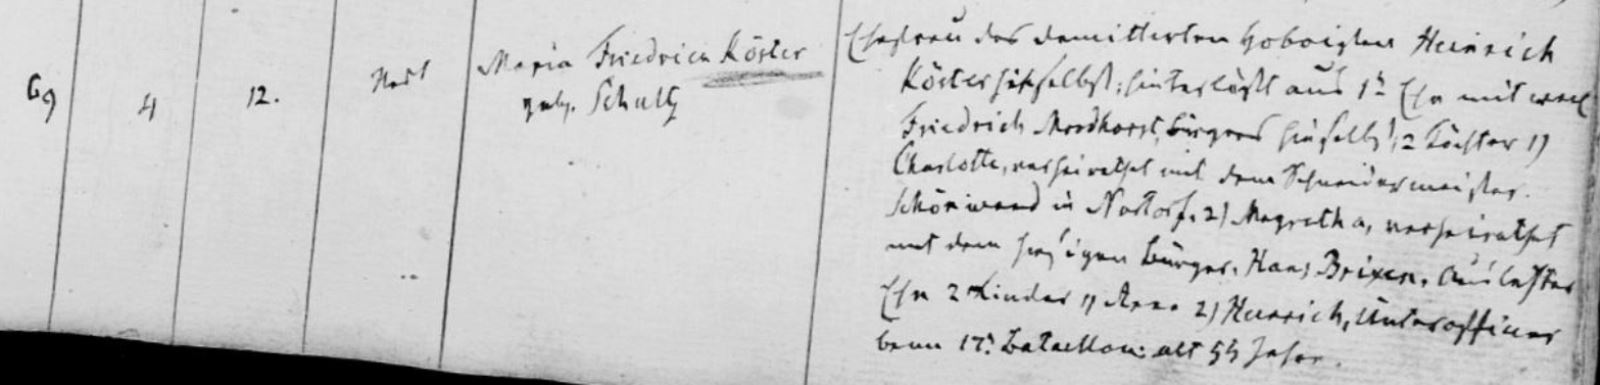 69 4 12. Nort Maria Friedrica Köster
geb. Schultz
Ehefrau des demittirten Hoboisten Heinrich
Köster hieselbst; hinterläßt aus 1r Ehe mit weil
Friedrich Mordhorst, Bürgers hieselbst, 2 Töchter 1)
Charlotte, verheirathet mit dem Schneidermeister
Schönwand in Nortorf, 2) Magretha, verheirathet
mit dem hiesigen Bürger Hans Brixen. Aus letzter
Ehe 2 Kinder 1) Anna 2) Heinrich, Unterofficier
beim 17n Bataillon; alt 55 Jahr.